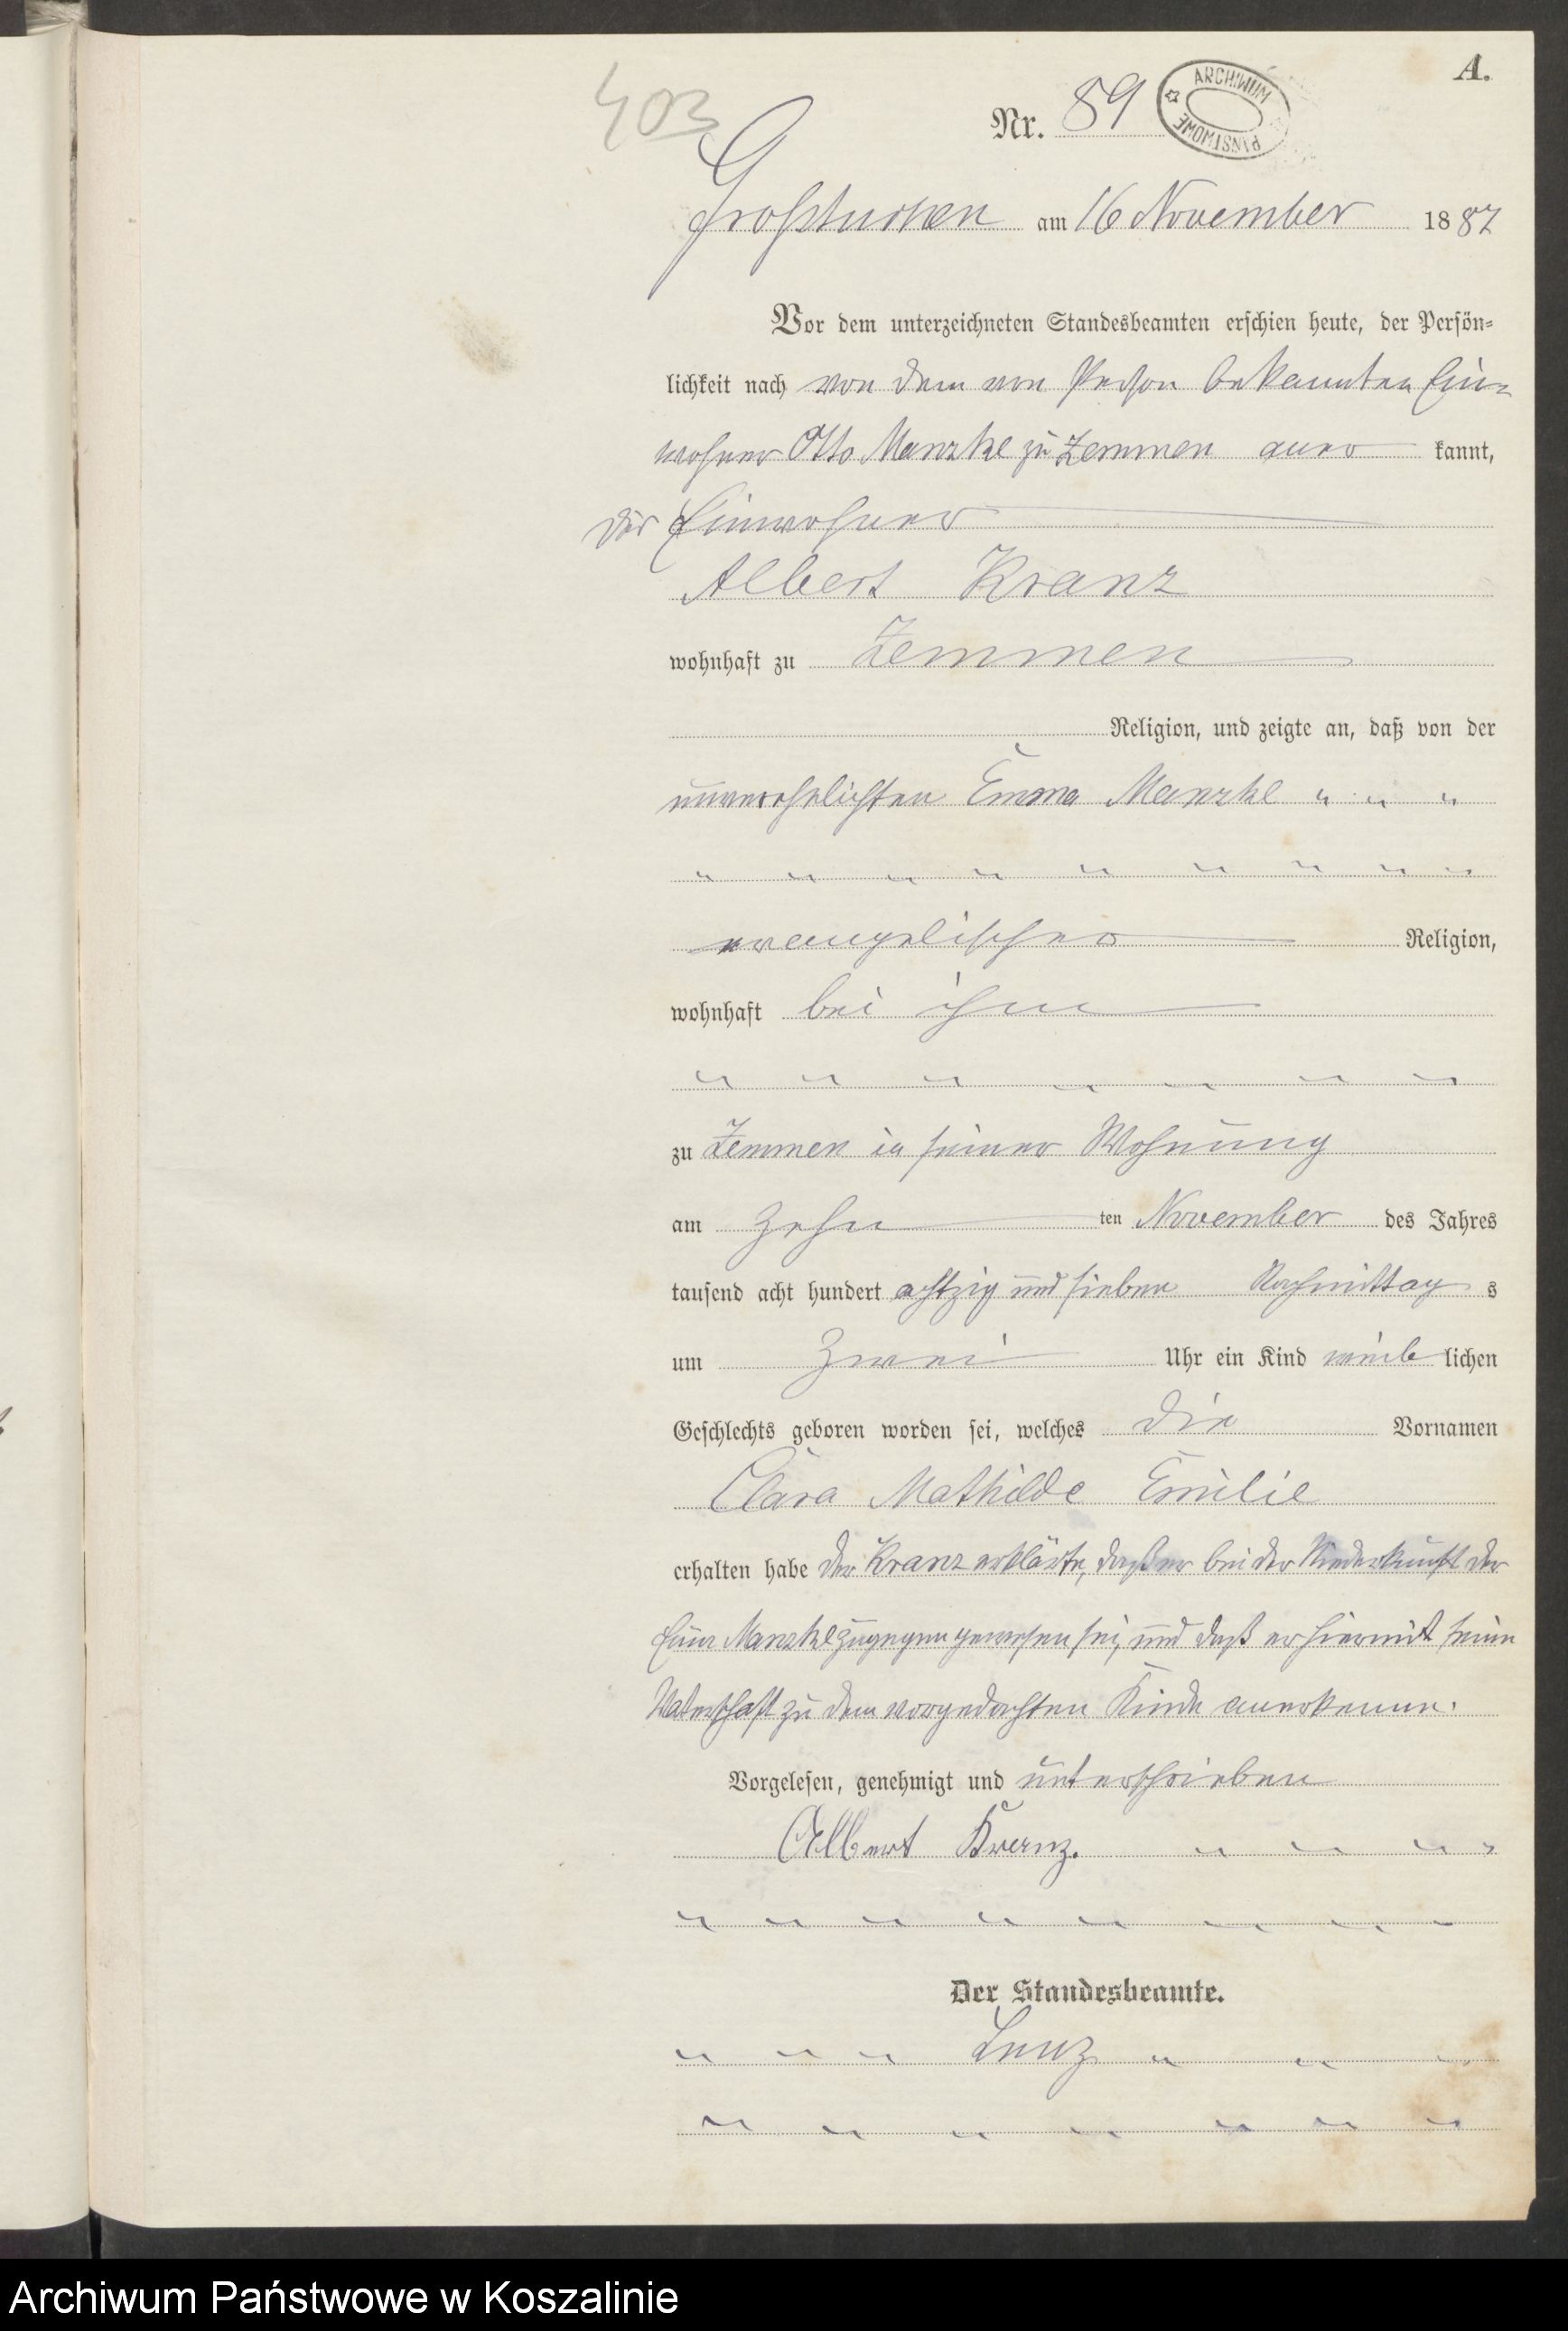 A.
403
Nr. 89
ARCHIWUM PAŃSTWOWE
Großtuchen am 16 November 1887
Vor dem unterzeichneten Standesbeamten erschien heute, der Persön=
lichkeit nach von dem von Person bekannten Ein=
wohner Otto Manzke zu Zemmen aner kannt,
der Einwohner
Albert Kranz
wohnhaft zu Zemmen
Religion, und zeigte an, daß von der
unverehelichten Emma Manzke " " "
" " " " " " " " "
evangelischer Religion,
wohnhaft bei ihm
" " " " " " "
zu Zemmen in seiner Wohnung
am zehn ten November des Jahres
tausend acht hundert achtzig und sieben Nachmittag s
um zwei Uhr ein Kind weib lichen
Geschlechts geboren worden sei, welches die Vornamen
Clara Mathilde Emilie
erhalten habe der Kranz erklärte, daß er bei der Niederkunft der
Manzke zugegen gewesen sei, und daß er hiermit seine
Vaterschaft zu dem vorgedachten Kinde anerkenne.
Vorgelesen, genehmigt und unterschrieben
Albert Kranz. " " " "
" " " " " " " "
Der Standesbeamte.
" " " Lenz " " "
" " " " " " "
Archiwum Państwowe w Koszalinie